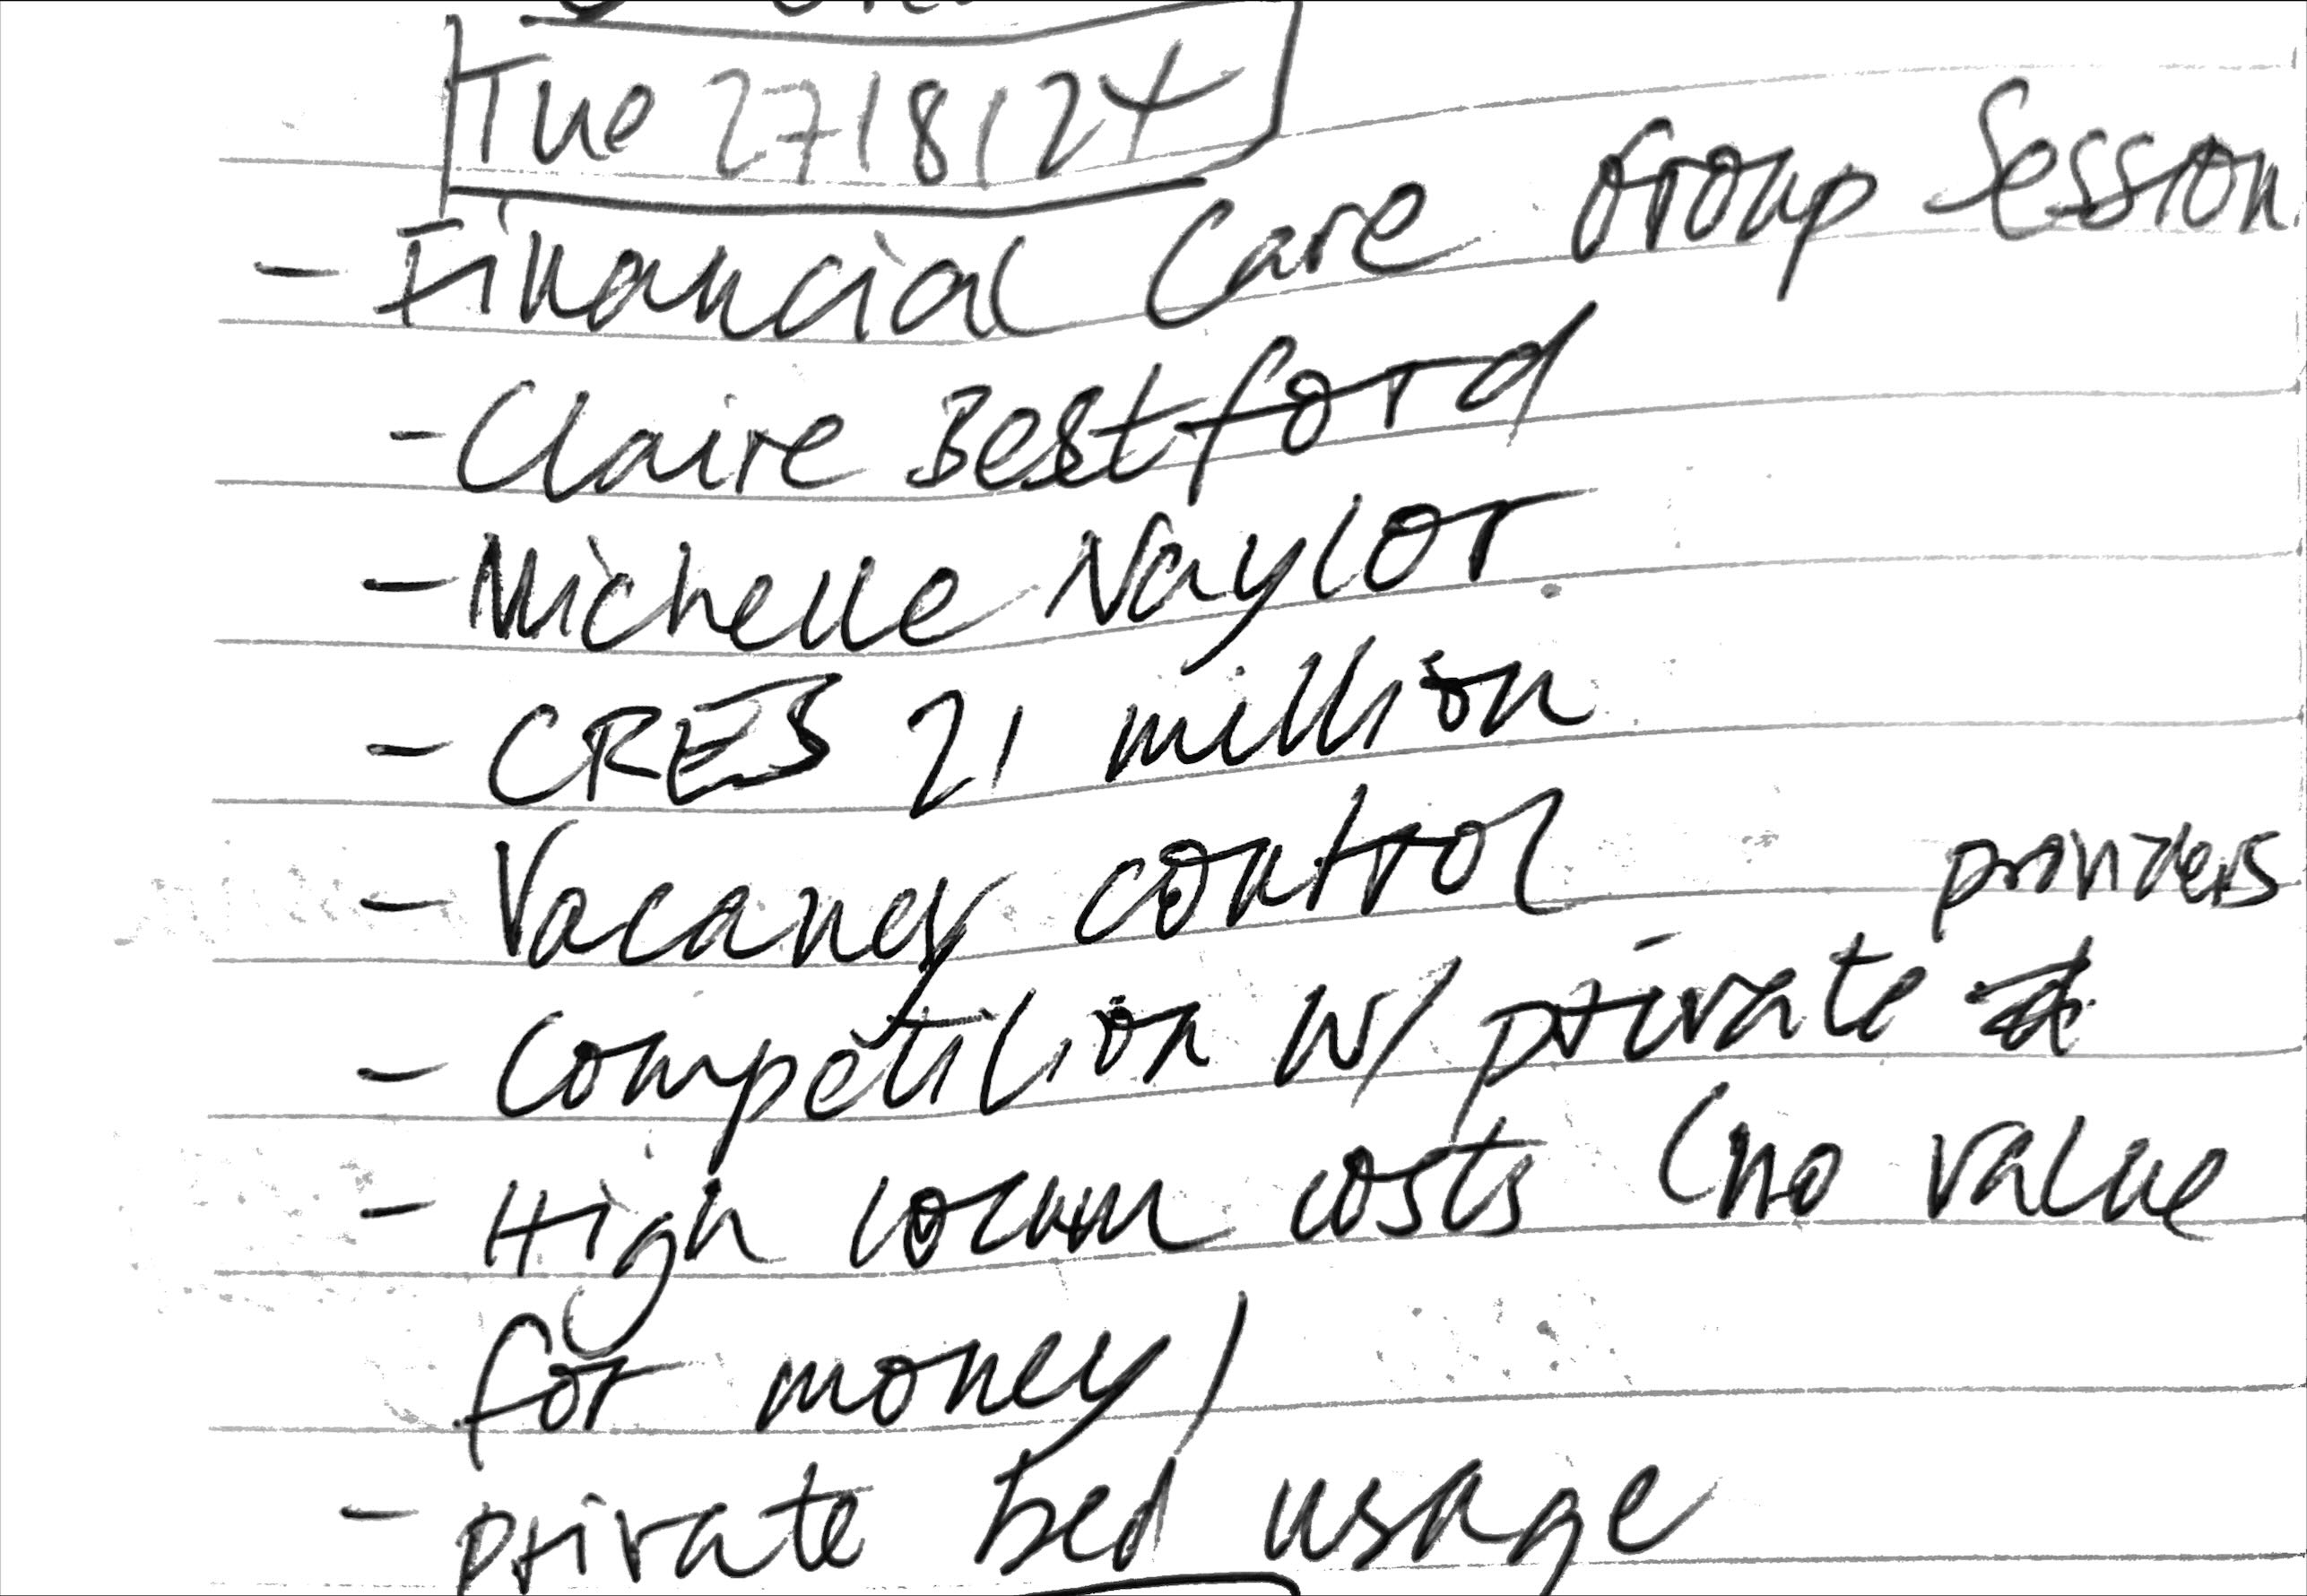 Tue 27/8/24
- Financial Care Group Session
- Claire Bestford
- Michelle Naylor
- CRES 21 million
- Vacancy control
providers
- Competition w/ private
- High locum costs (no value
for money)
- private bed usage